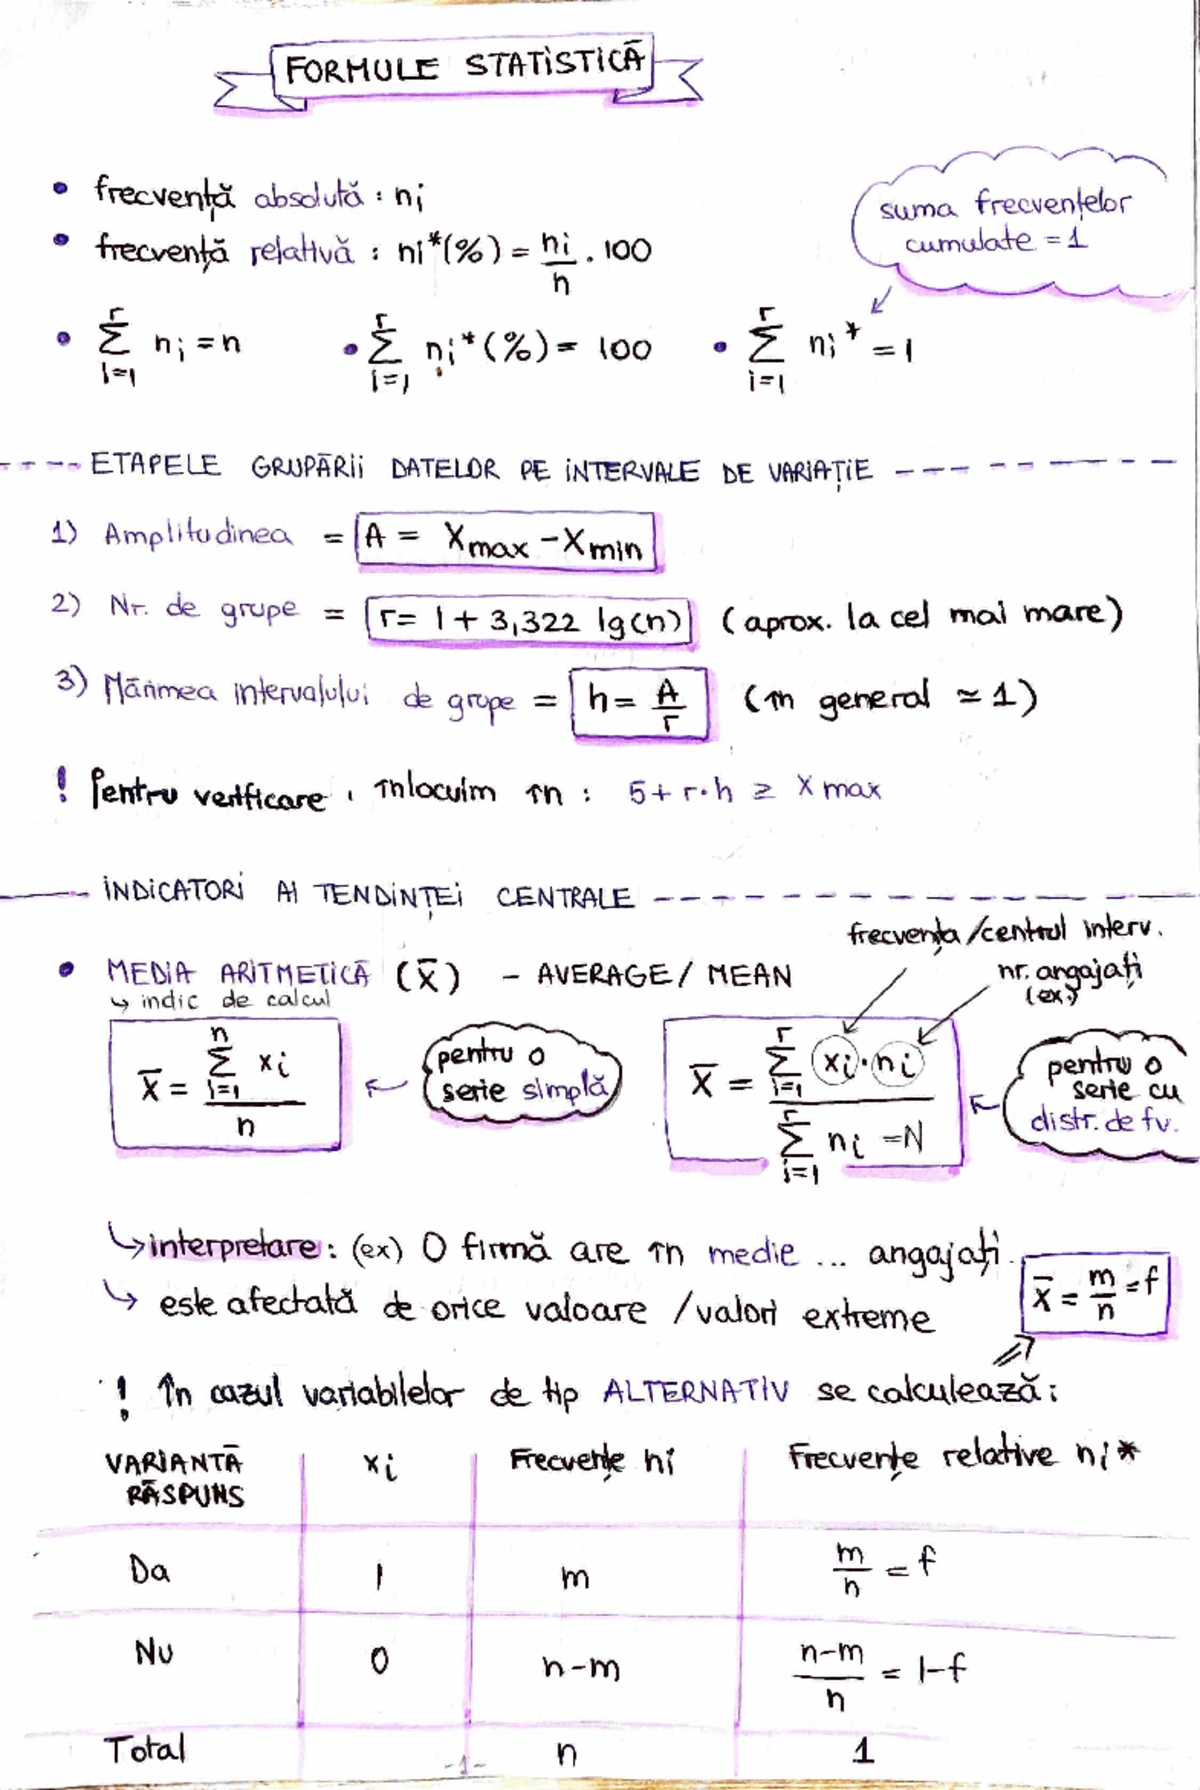 FORMULE STATISTICĂ
• frecvență absolută : ni
• frecvență relativă : ni*(%) = ni/n . 100
suma frecvențelor
cumulate = 1
• r Σ i=1 ni = n • r Σ i=1 ni*(%) = 100 • r Σ i=1 ni* = 1
ETAPELE GRUPĂRII DATELOR PE INTERVALE DE VARIAȚIE
1) Amplitudinea = A = Xmax - Xmin
2) Nr. de grupe = r = 1 + 3,322 lg(n) (aprox. la cel mai mare)
3) Mărimea intervalului de grupe = h = A/r (în general ≃ 1)
! Pentru verificare, înlocuim în : 5 + r·h ≥ Xmax
INDICATORI AI TENDINȚEI CENTRALE
frecvența/centrul interv.
• MEDIA ARITMETICĂ (x̄) - AVERAGE / MEAN
nr. angajați
(ex.)
↳ indic de calcul
x̄ = n Σ i=1 xi / n
pentru o
serie simplă
x̄ = r Σ i=1 xi·ni / r Σ i=1 ni = N
pentru o
serie cu
distr. de fv.
↳ interpretare: (ex) O firmă are în medie ... angajați.
↳ este afectată de orice valoare /valori extreme
x̄ = m/n = f
! În cazul variabilelor de tip ALTERNATIV se calculează:
VARIANTĂ RĂSPUNS xi Frecvențe ni Frecvențe relative ni*
Da 1 m m/n = f
Nu 0 n-m n-m/n = 1-f
Total n 1
-1-